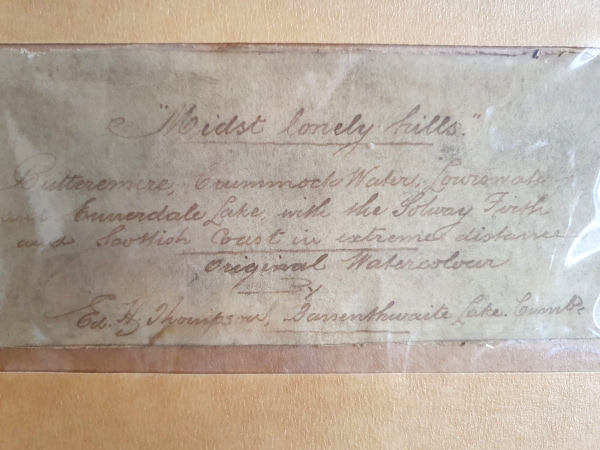 "Midst lonely hills."
Buttermere, Crummock Water, Lowswate
and Ennerdale Lake, with the Solway Firth
and Scottish Coast in extreme distance
Original Watercolour
by
Ed. H. Thompson, Bassenthwaite Lake. Cumb.